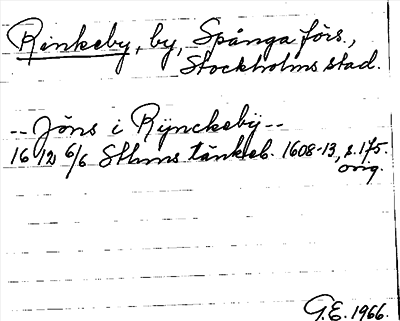 Rinkeby, by, Spånga förs.,
Stockholms stad.
-- Jöns i Rÿnckebÿ --
16 12 6/6 Sthms tänkeb. 1608-13, s. 175.
orig.
G.E. 1966.